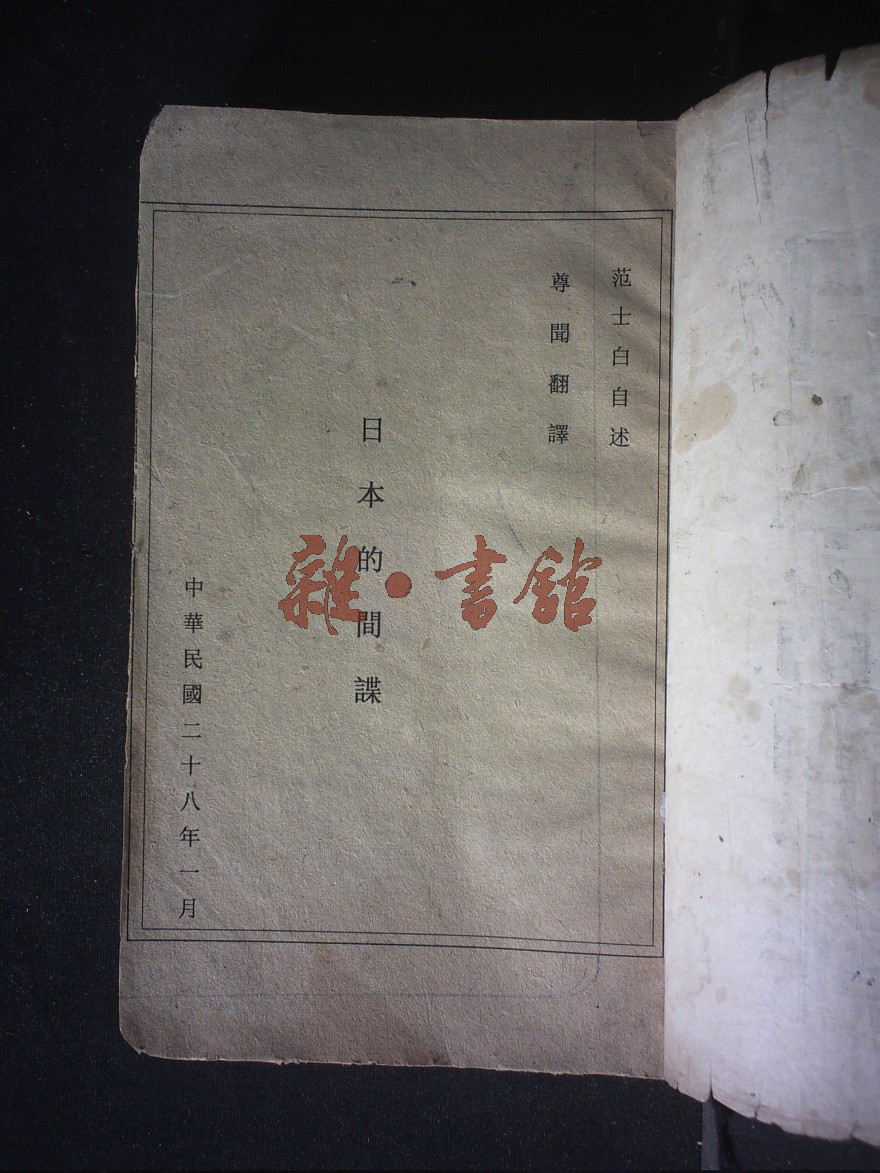 范士白自述
尊聞翻譯
日本的間諜
中華民國二十八年一月
雜·書館